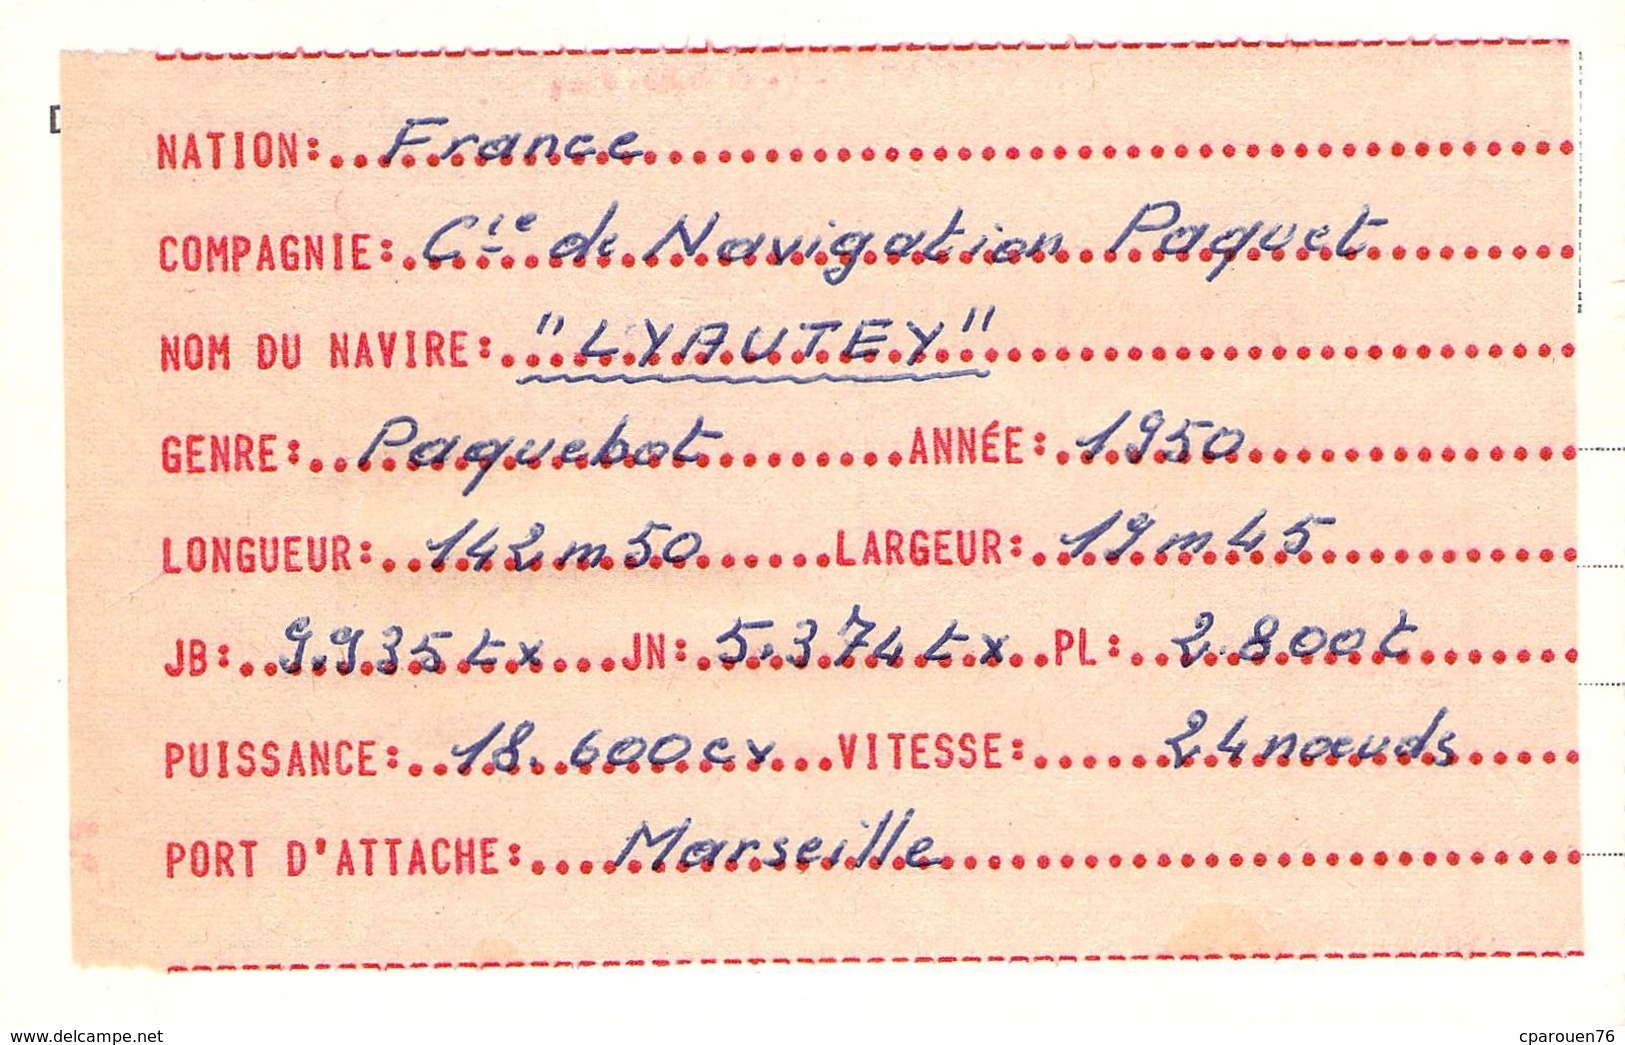 NATION: France
COMPAGNIE: Cie de Navigation Paquet
NOM DU NAVIRE: "LYAUTEY"
GENRE: Paquebot ANNÉE: 1950
LONGUEUR: 142m50 LARGEUR: 19m45
JB: 9.935tx JN: 5.374tx PL: 2.800t
PUISSANCE: 18.600cv VITESSE: 24nœuds
PORT D'ATTACHE: Marseille
www.delcampe.net cparouen76